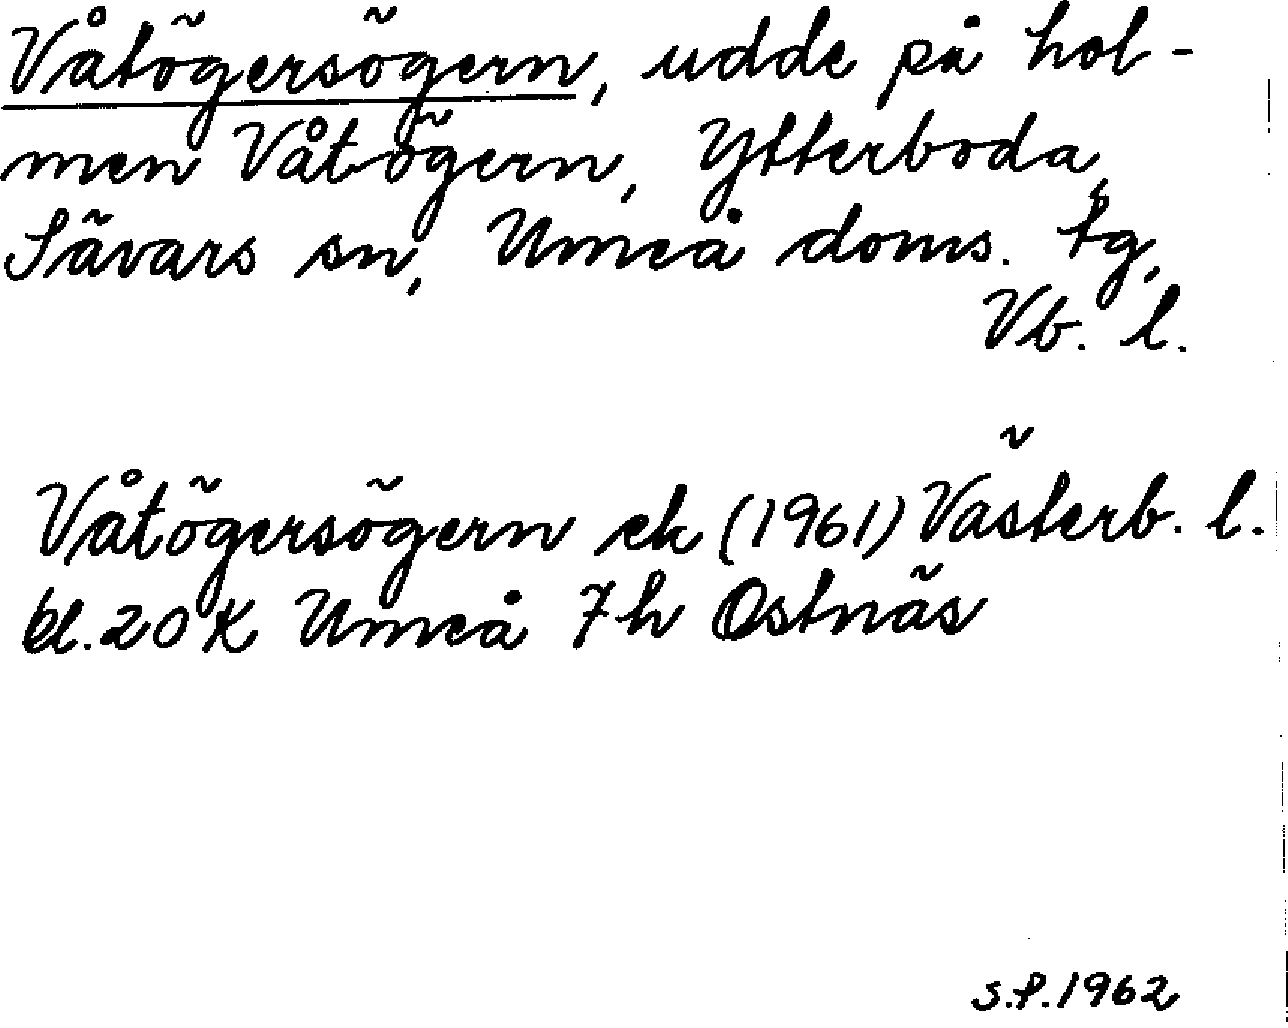 Våtögersögern, udde på hol-
men Våtögern, Ytterboda,
Sävars sn, Umeå doms. tg,
Vb. l.
Våtögersögern ek (1961) Västerb. l.
bl. 20 K Umeå 7h Ostnäs
S.P. 1962